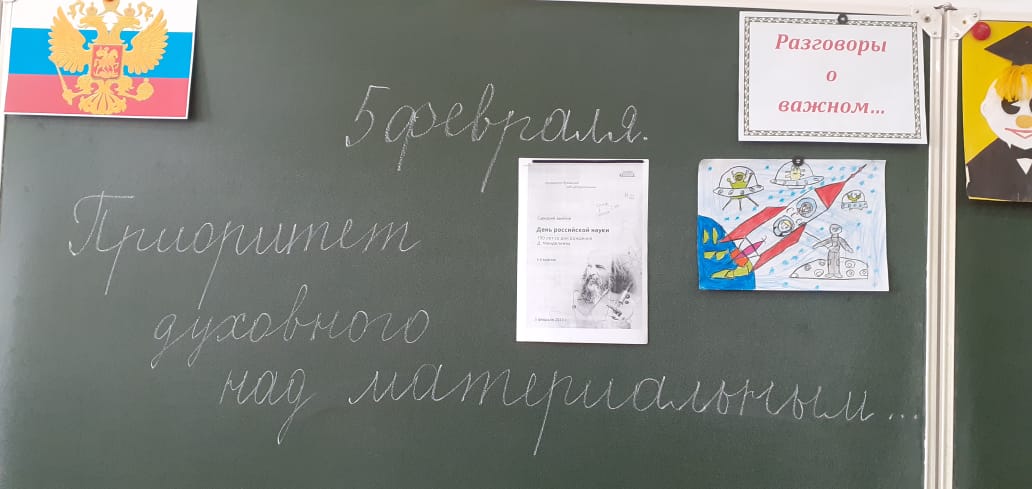 Разговоры
о
важном...
5 февраля.
Приоритет
духовного
над материальным...
Сценарий занятия
День российской науки
190 лет со дня рождения
Д. Менделеева